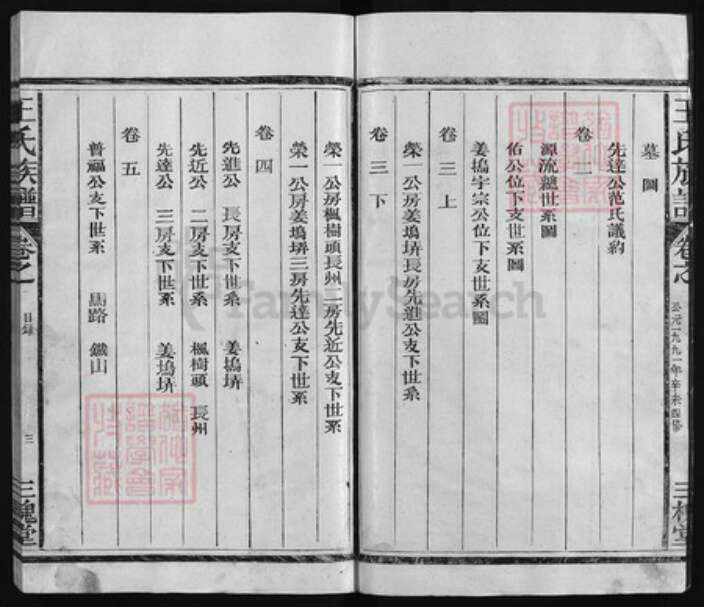 王氏族譜
卷之一
公元一九九一年辛未四修
三槐堂
墓圖
先達公范氏議約
卷二
源流總世系圖
佑公位下支世系圖
姜塢宇宗公位下支世系圖
卷三上
榮一公房姜塢塝長房先進公支下世系
卷三下
榮一公房楓樹頭長州二房先近公支下世系
榮一公房姜塢塝三房先達公支下世系
卷四
先進公 長房支下世系 姜塢塝
先近公 二房支下世系 楓樹頭 長州
先達公 三房支下世系 姜塢塝
卷五
普福公支下世系 馬路 鐵山
王氏族譜
卷之一
目錄
三
三槐堂
FamilySearch